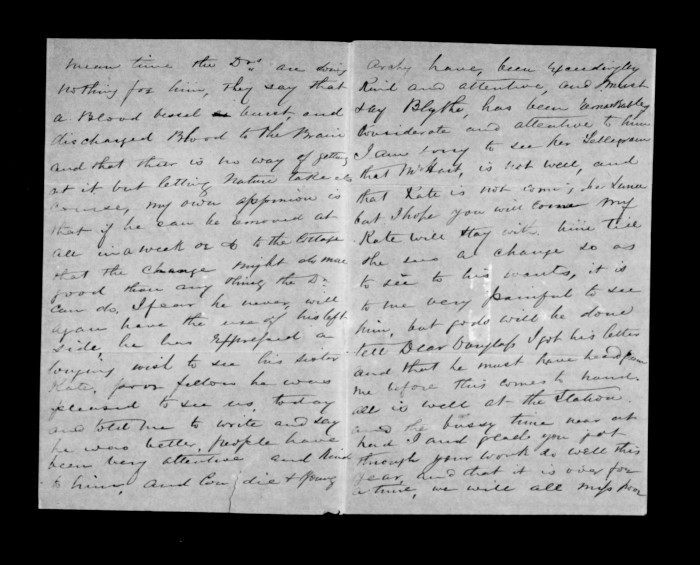 mean time the Drs are doing
nothing for him, they say that
a Blood vessel is burst, and
discharged Blood to the Brain
and that thear is no way of getting
at it but letting Nature take its
course, my own oppinion is
that if he can be removed at
all in a week or to the Cottage
that the change might do more
good than any thing the Dr
can do, I fear he never will
again have the use of his left
side, he has Expressed a
longing wish to see his sister
Kate, poor fellow he was
pleased to see us, today
and told me to write and say
he was better, people have
been very attentive and kind
to him, and Con die & young
Archy have, been Exceedingley
Kind and attentive, and I must
say Blythe, has been
Considerate and attentive to him
I am sorry to see her Tellegram
that Mr Hart, is not well, and
that Kate is not coming,
but I hope you will come My
Kate will stay with him till
she sees a change so as
to see to his wants, it is
to me very painful to see
him, but gods will be done
tell Dear Douglass I got his letter
and that he must have heard from
me before this comes to hand,
all is well at the Station.
and the bussy time near at
hand I and glade you got
through your work so well this
year, and that it is over for
a time, we will all miss